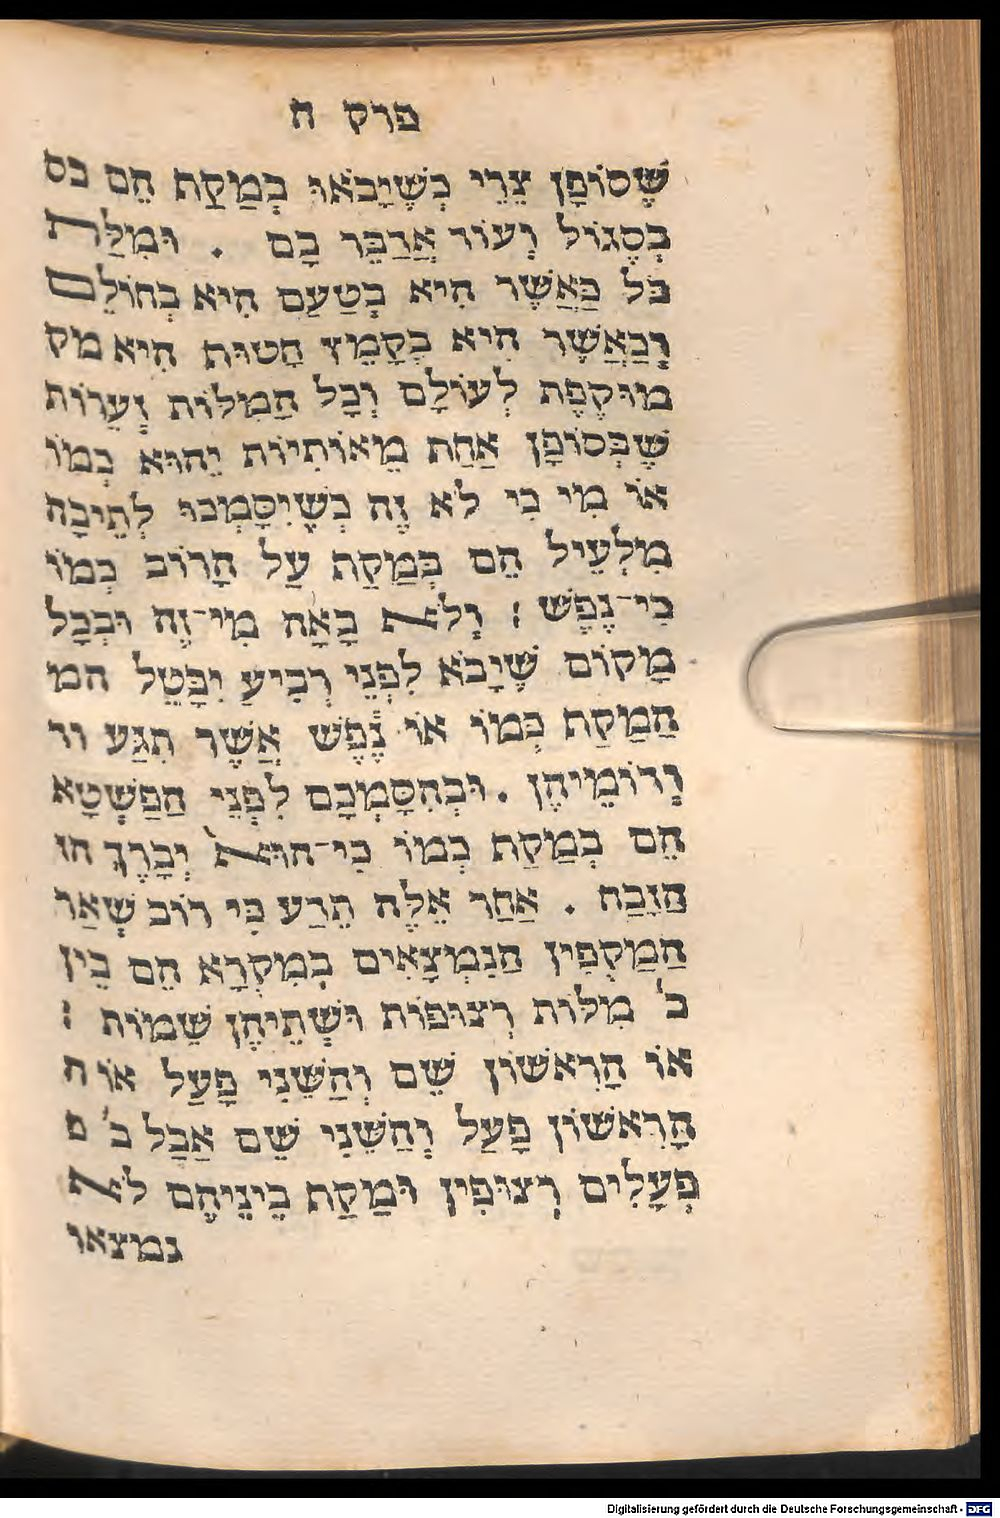 פרק ח
שֶׁסוֹפָן צֵרֵי כְּשֶׁיָבֹאוּ בְּמַקַת הֵם כס
בְּסֶגוֹל וְעוֹד אֲדַבֵּר בָּם . וּמִלַּת
כֹּל כַּאֲשֶׁר הִיא בְטַעַם הִיא בְחוֹלֵם
וְכַאֲשֶׁר הִיא בְקָמֵץ חָטוּף הִיא מק
מוּקֶפֶת לְעוֹלָם וְכָל הַמִלוֹת זְעֵרוֹת
שֶׁבְּסוֹפָן אַחַת מֵאוֹתִיוֹת יֵהוּא כְּמוֹ
אוֹ מִי כִי לֹא זֶה כְּשֶׁיִסָּמְכוּ לְתֵיבָה
מִלְעֵיל הֵם בְּמַקֵף עַל הָרוֹב כְּמוֹ
כִּי־נֶפֶשׁ : וְלֹא בָאָה מִי־זֶה וּבְכָל
מָקוֹם שֶׁיָבֹא לִפְנֵי רְבִיעַ יִבָּטֵל המ
הַמַקַף כְּמוֹ אוֹ נֶ֗פֶשׁ אֲשֶׁר תִּגַּע וד
וְדוֹמֵיהֶן . וּבְהִסָּמְכָם לִפְנֵי הַפַּשְׁטָא
הֵם בְּמַקַף כְּמוֹ כִּי־הוּא֙ יְבָרֵךְ הז
הַזֶבַח . אַחַר אֵלֶּה תֵּדַע כִּי רוֹב שְׁאַר
הַמַקְפִין הַנִמְצָאִים בְּמִקְרָא הֵם בֵּין
ב' מִלּוֹת רְצוּפוֹת וּשְׁתֵיהֶן שֵׁמוֹת :
אוֹ הָרִאשׁוֹן שֵׁם וְהַשֵּׁנִי פָּעַל אוֹ ה
הָרִאשׁוֹן פָּעַל וְהַשֵּׁנִי שֵׁם אֲבָל ב' פ
פְּעָלִים רְצוּפִין וּמַקַף בֵּינֵיהֶם לֹא
נמצאו
Digitalisierung gefördert durch die Deutsche Forschungsgemeinschaft - DFG